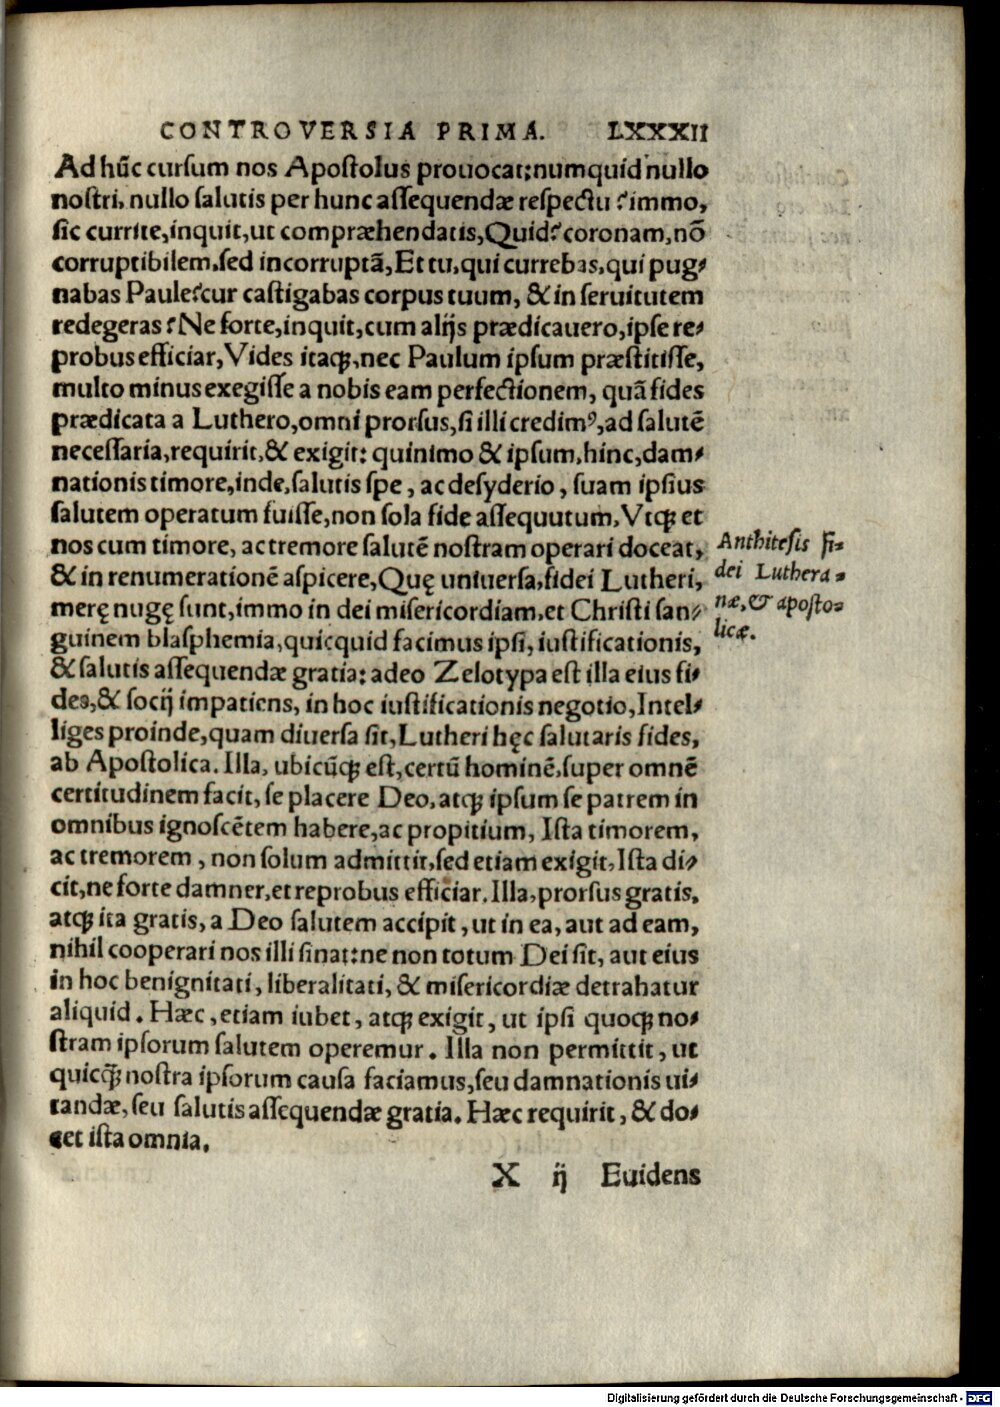 CONTROVERSIA PRIMA. LXXXII
Ad hūc cursum nos Apostolus prouocat:numquid nullo
nostri, nullo salutis per hunc assequendæ respectu ? immo,
sic currite,inquit,ut compræhendatis,Quid? coronam,nō
corruptibilem,sed incorruptā,Et tu,qui currebas,qui pug-
nabas Paule?cur castigabas corpus tuum, & in seruitutem
redegeras ? Ne forte,inquit,cum alijs prædicauero,ipse re-
probus efficiar,Vides itaqꝫ,nec Paulum ipsum præstitisse,
multo minus exegisse a nobis eam perfectionem, quā fides
prædicata a Luthero,omni prorsus,si illi credimꝰ,ad salutē
necessaria,requirit,& exigit: quinimo & ipsum,hinc,dam-
nationis timore,inde,salutis spe, ac desyderio, suam ipsius
salutem operatum fuisse,non sola fide assequutum,Vtqꝫ et
nos cum timore, ac tremore salutē nostram operari doceat,
& in renumerationē aspicere,Quę uniuersa,fidei Lutheri,
merę nugę sunt,immo in dei misericordiam,et Christi san-
guinem blasphemia,quicquid facimus ipsi, iustificationis,
& salutis assequendæ gratia: adeo Zelotypa est illa eius fi-
des,& socij impatiens, in hoc iustificationis negotio,Intel-
liges proinde,quam diuersa sit,Lutheri hęc salutaris fides,
ab Apostolica. Illa, ubicūqꝫ est,certū hominē,super omnē
certitudinem facit, se placere Deo,atqꝫ ipsum se patrem in
omnibus ignoscētem habere,ac propitium, Ista timorem,
ac tremorem , non solum admittit,sed etiam exigit,Ista di-
cit,ne forte damner,et reprobus efficiar.Illa,prorsus gratis,
atqꝫ ita gratis, a Deo salutem accipit, ut in ea, aut ad eam,
nihil cooperari nos illi sinat:ne non totum Dei sit, aut eius
in hoc benignitati, liberalitati, & misericordiæ detrahatur
aliquid. Hæc, etiam iubet, atqꝫ exigit, ut ipsi quoqꝫ no-
stram ipsorum salutem operemur. Illa non permittit, ut
quicq̄ꝫ nostra ipsorum causa faciamus,seu damnationis ui-
tandæ, seu salutis assequendæ gratia. Hæc requirit, & do-
cet ista omnia.
Anthitesis fi-
dei Luthera-
næ,& aposto-
licæ.
X ij Euidens
Digitalisierung gefördert durch die Deutsche Forschungsgemeinschaft - DFG